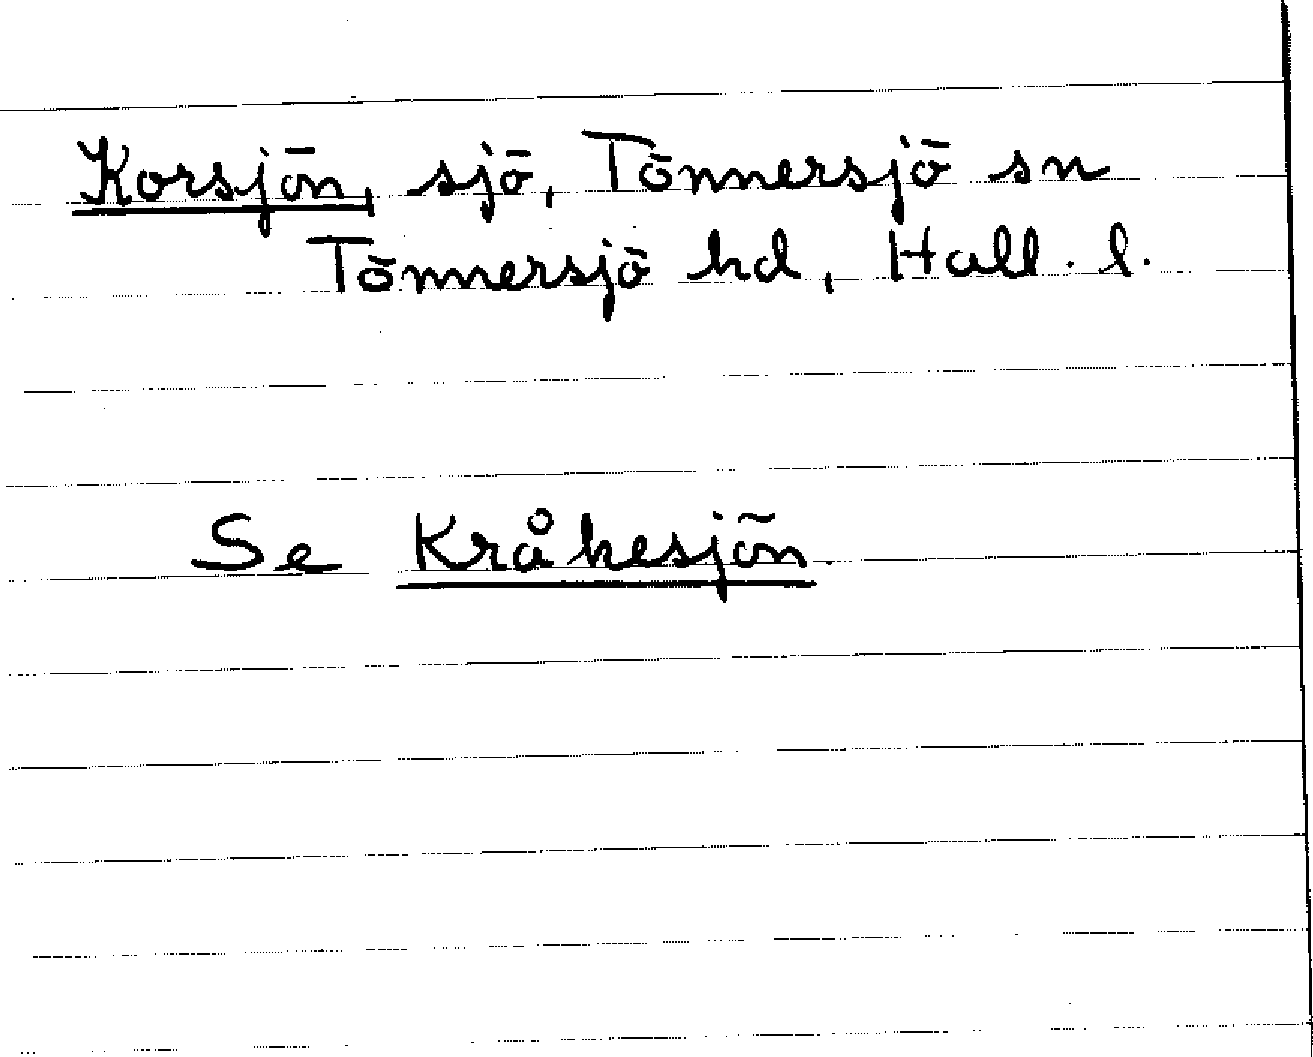 Korsjön, sjö, Tönnersjö sn
Tönnersjö hd, Hall. l.
Se Kråkesjön.